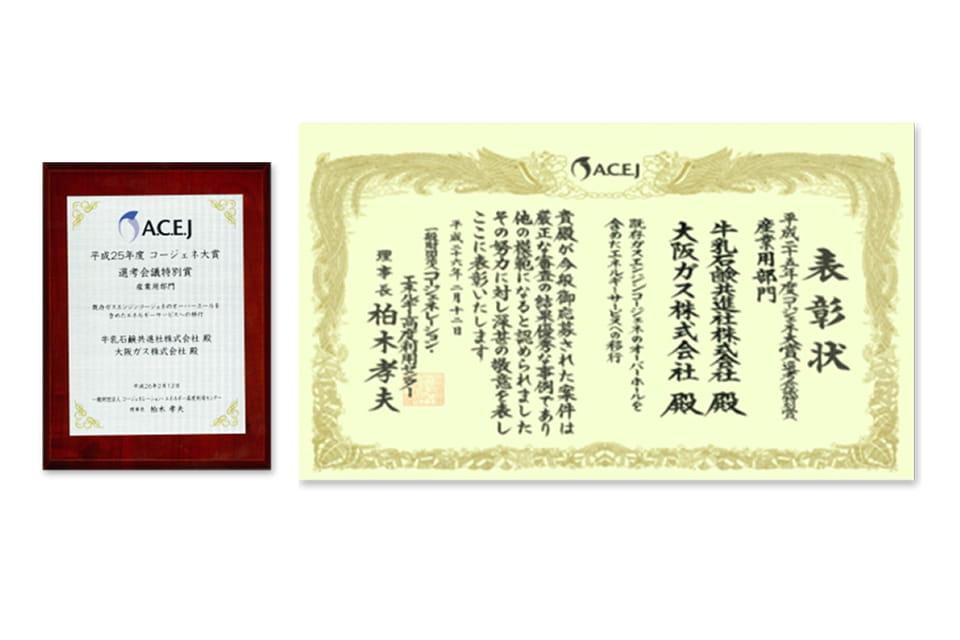 A.C.E.J
平成25年度 コージェネ大賞
選考会議特別賞
産業用部門
既存ガスエンジンコージェネのオーバーホールを
含めたエネルギーサービスへの移行
牛乳石鹸共進社株式会社 殿
大阪ガス株式会社 殿
平成26年2月12日
一般財団法人 コージェネレーション・エネルギー高度利用センター
理事長 柏木 孝夫
A.C.E.J
表彰状
平成二十五年度コージェネ大賞選考会議特別賞
産業用部門
牛乳石鹸共進社株式会社 殿
大阪ガス株式会社 殿
既存ガスエンジンコージェネのオーバーホールを
含めたエネルギーサービスへの移行
貴殿が今般御応募された案件は
厳正な審査の結果優秀な事例であり
他の模範になると認められました
その努力に対し深甚の敬意を表し
ここに表彰いたします
平成二十六年二月十二日
一般財団法人コージェネレーション・
エネルギー高度利用センター
理事長 柏木孝夫